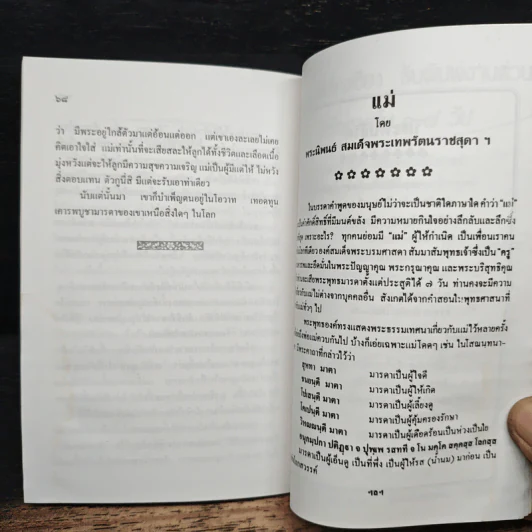 ๖๘
ว่า มีพระอยู่ใกล้ตัวมาแต่อ้อนแต่ออก แต่เขาเองละเลยไม่เคย
คิดเอาใจใส่ แม่เท่านั้นที่จะเสียสละให้ลูกได้ทั้งชีวิตและเลือดเนื้อ
มุ่งหวังแต่จะให้ลูกมีความสุขความเจริญ แม่เป็นผู้มีแต่ให้ ไม่หวัง
สิ่งตอบแทน ตัวกูนี่สิ มีแต่จะรับเอาท่าเดียว
นับแต่นั้นมา เขาก็บำเพ็ญตนอยู่ในโอวาท เทอดทูน
เคารพบูชามารดาของเขาเหนือสิ่งใดๆ ในโลก
แม่
โดย
พระนิพนธ์ สมเด็จพระเทพรัตนราชสุดา ฯ
ในบรรดาคำพูดของมนุษย์ไม่ว่าจะเป็นชาติใดภาษาใด คำว่า "แม่"
คำศักดิ์สิทธิ์ที่มีมนต์ขลัง มีความหมายกินใจอย่างลึกล้ำและลึกซึ้ง
เพราะอะไร? ทุกคนย่อมมี "แม่" ผู้ให้กำเนิด เป็นเพื่อนเรา
องค์สมเด็จพระบรมศาสดา สัมมาสัมพุทธเจ้าซึ่งเป็น "ครู"
ในพระปัญญาคุณ พระกรุณาคุณ และพระบริสุทธิคุณ
พระพุทธมารดาตั้งแต่ประสูติได้ ๗ วัน ท่านคงมีความ
ไม่ต่างจากบุคคลอื่น สังเกตได้จากคำสอนในพุทธศาสนาที่
ทั่วๆ ไป
พระพุทธองค์ทรงแสดงพระธรรมเทศนาเกี่ยวกับแม่ไว้หลายครั้ง
แม่ควบกันไป บ้างก็เอ่ยเฉพาะแม่โดดๆ เช่น ในโสณนันท-
มีพระคาถาที่กล่าวไว้ว่า
สุหทา มาตา มารดาเป็นผู้ใจดี
ชนยนฺตี มาตา มารดาเป็นผู้ให้เกิด
โปเสนฺตี มาตา มารดาเป็นผู้เลี้ยงดู
โคเปนฺตี มาตา มารดาเป็นผู้คุ้มครองรักษา
มาตา มารดาเป็นผู้เดือดร้อนเป็นห่วงเป็นใย
อนุกมฺปกา ปติฏฺฐา จ ปุพฺเพ รสทที จ โน มคฺโค
มารดาเป็นผู้เอ็นดู เป็นที่พึ่ง เป็นผู้ให้รส (น้ำนม) มาก่อน เป็น
สวรรค์